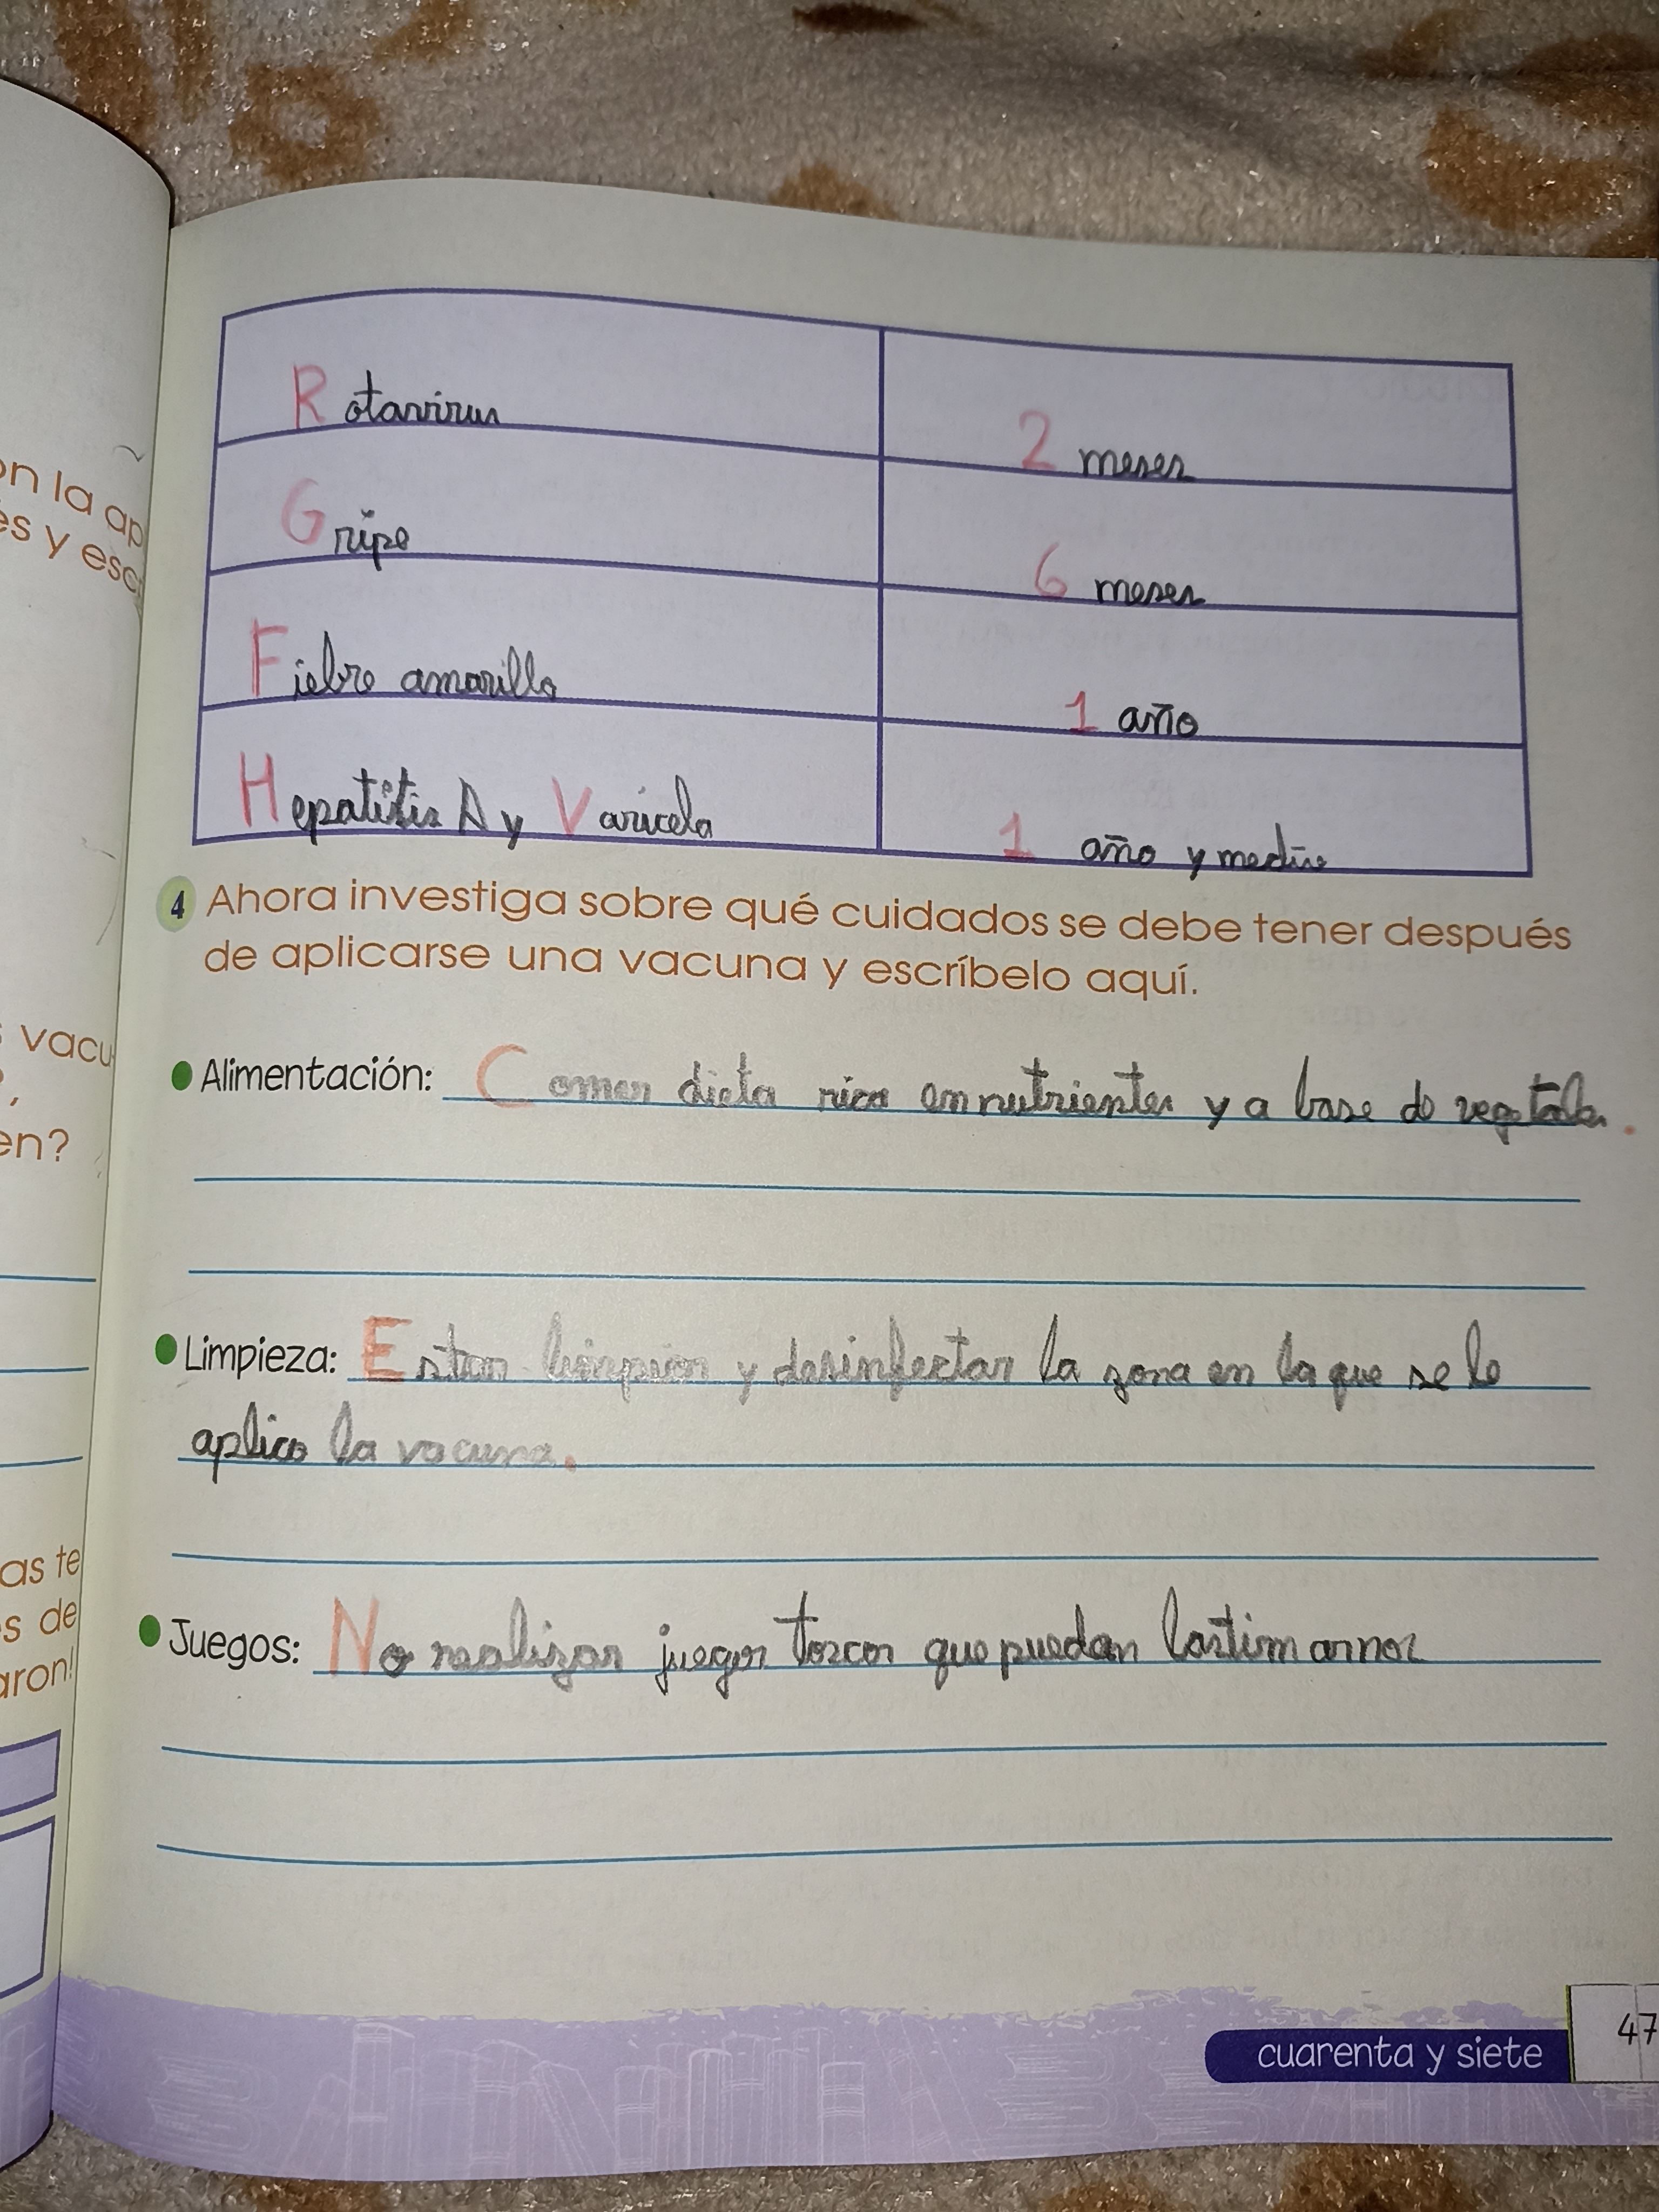 Rotavirus
2 meses
Gripe
6 meses
Fiebre amarilla
1 año
Hepatitis A y Varicela
1 año y medio
4 Ahora investiga sobre qué cuidados se debe tener después
de aplicarse una vacuna y escríbelo aquí.
Alimentación: Comer dieta rica en nutrientes y a base de vegetales.
Limpieza: Estar limpios y desinfectar la zona en la que se le
aplico la vacuna.
Juegos: No realizar juegos toscos que puedan lastimarnos
cuarenta y siete
47
on la ap
es y esc
vacu
en?
as te
s de
aron!